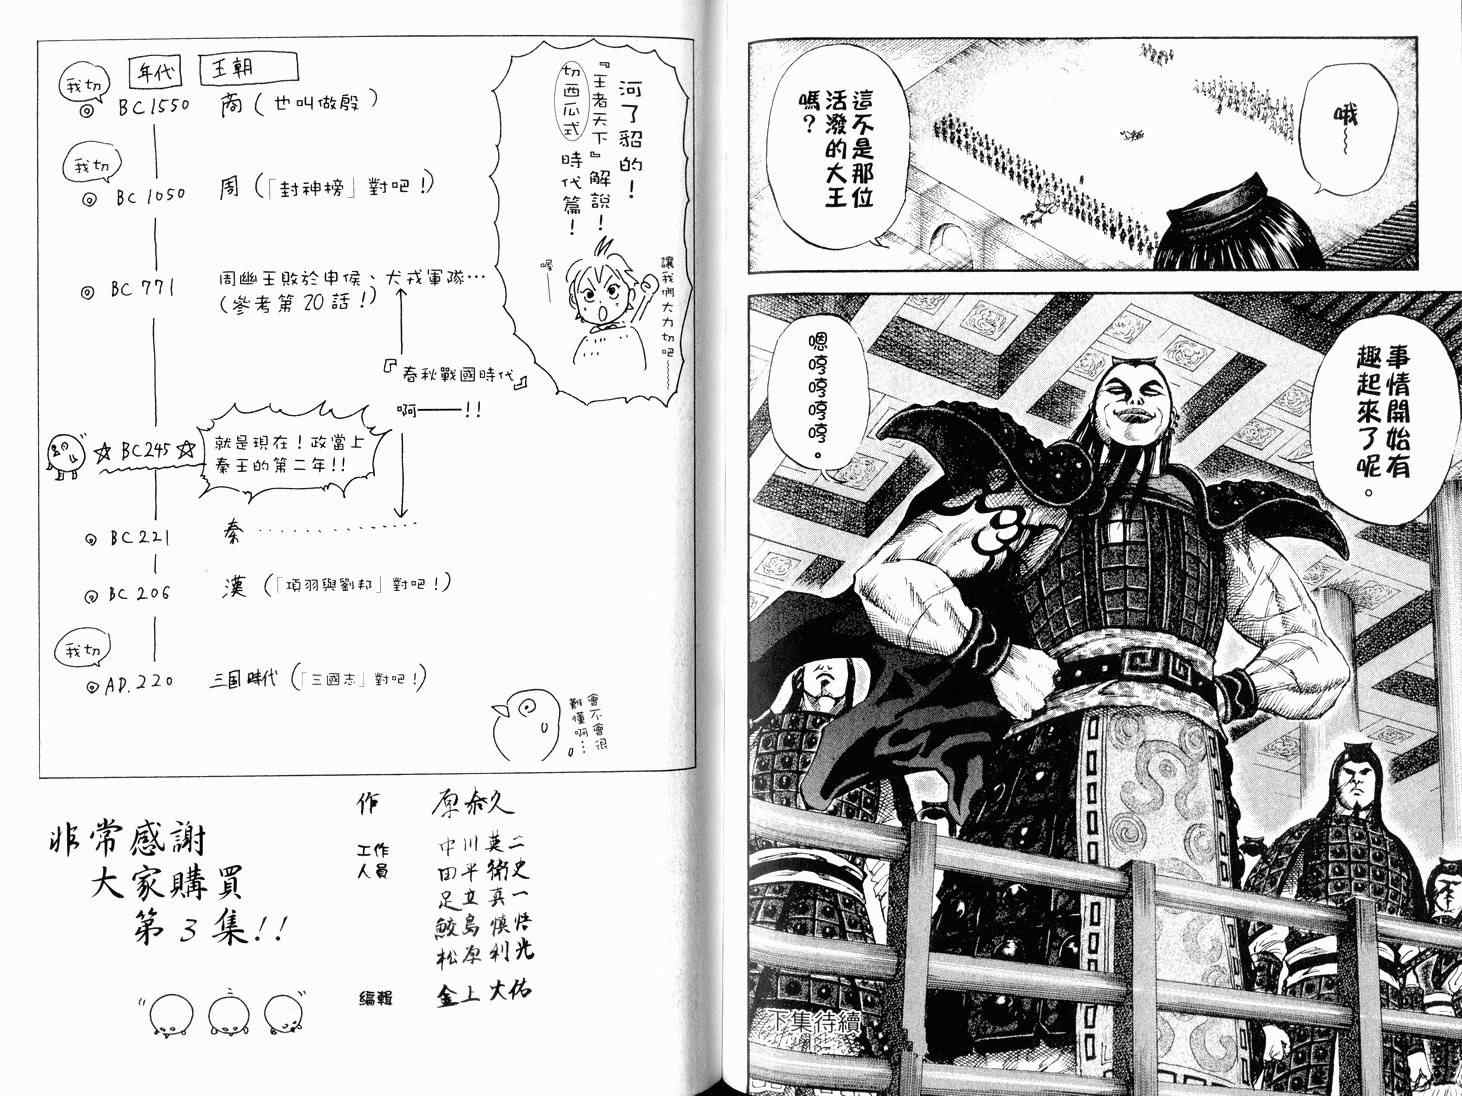 哦～
這不是那位
活潑的大王
嗎？
事情開始有
趣起來了呢。
嗯哼哼哼哼。
下集待續
河了貂的！
『王者天下』解說！
切西瓜式 時代篇！
讓我們大力切吧～
喔—
年代 王朝
我切
◎ BC 1550 商（也叫做殷）
我切
◎ BC 1050 周（「封神榜」對吧！）
◎ BC 771 周幽王敗於申侯、犬戎軍隊…
（參考第20話！）
『春秋戰國時代』
啊——!!
☆ BC 245 ☆ 就是現在！政當上
秦王的第二年!!
◎ BC 221 秦
◎ BC 206 漢（「項羽與劉邦」對吧！）
我切
◎ AD. 220 三国時代（「三國志」對吧！）
會不會很
難懂啊…
非常感謝
大家購買
第3集!!
作 原泰久
工作
人員
中川英二
田平衛史
足立真一
鮫島慎悟
松原利光
編輯 金上大佑